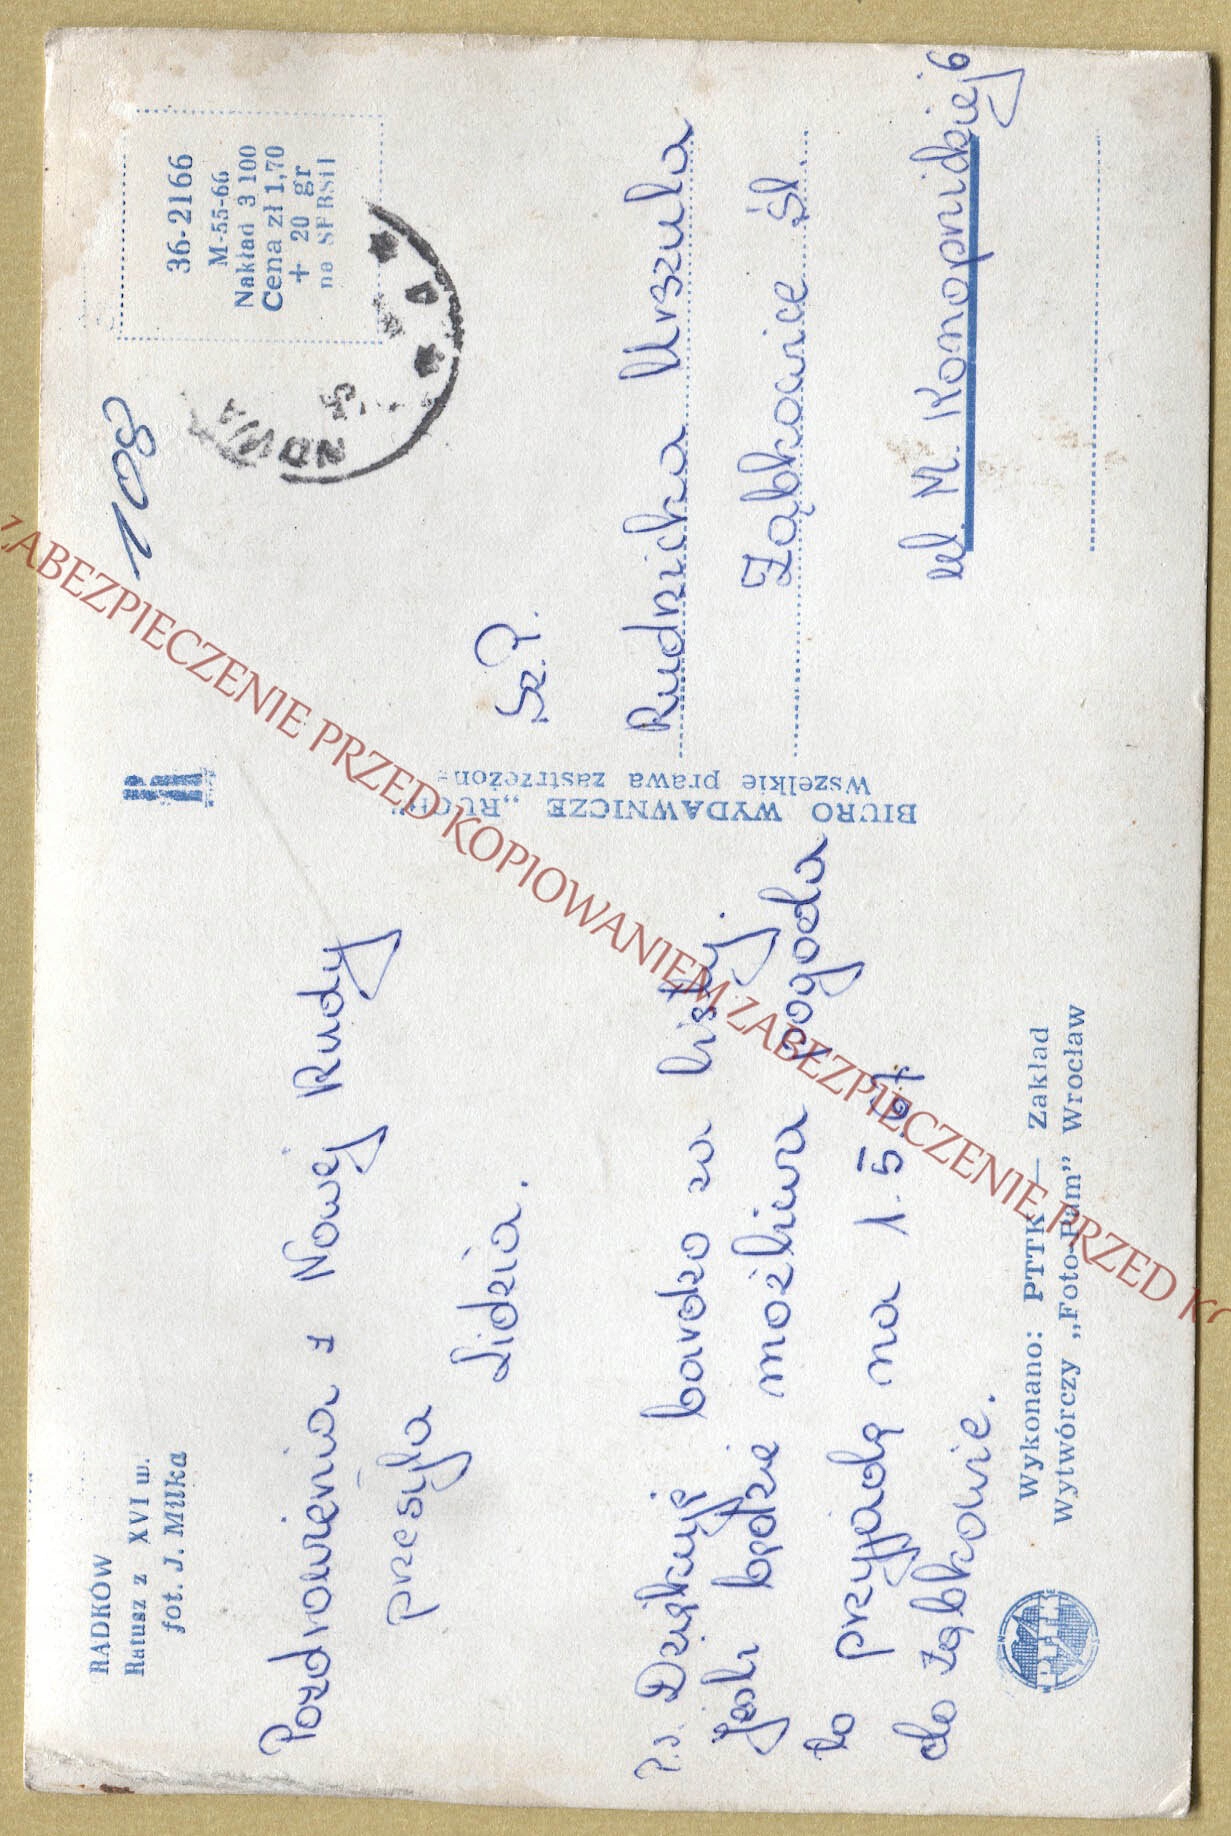 RADKÓW
Ratusz z XVI w.
fot. J. Milka
Pozdrowienia z Nowej Rudy
przesyła
Lidzia.
P.S. Dziękuję bardzo za listy.
Jeśli będzie możliwa pogoda
to przyjadę na 1.5.67
do Ząbkowic.
Wykonano: PTTK — Zakład
Wytwórczy „Foto-Pam" Wrocław
PTTK
BIURO WYDAWNICZE „RUCH"
Wszelkie prawa zastrzeżone
108
36-2166
M-55-66
Nakład 3 100
Cena zł 1,70
+ 20 gr
na SFBSiI
NOWA
A
Sz.P.
Rudzicka Urszula
Ząbkowice Śl.
ul. M. Konopnickiej 6
ZABEZPIECZENIE PRZED KOPIOWANIEM ZABEZPIECZENIE PRZED KO